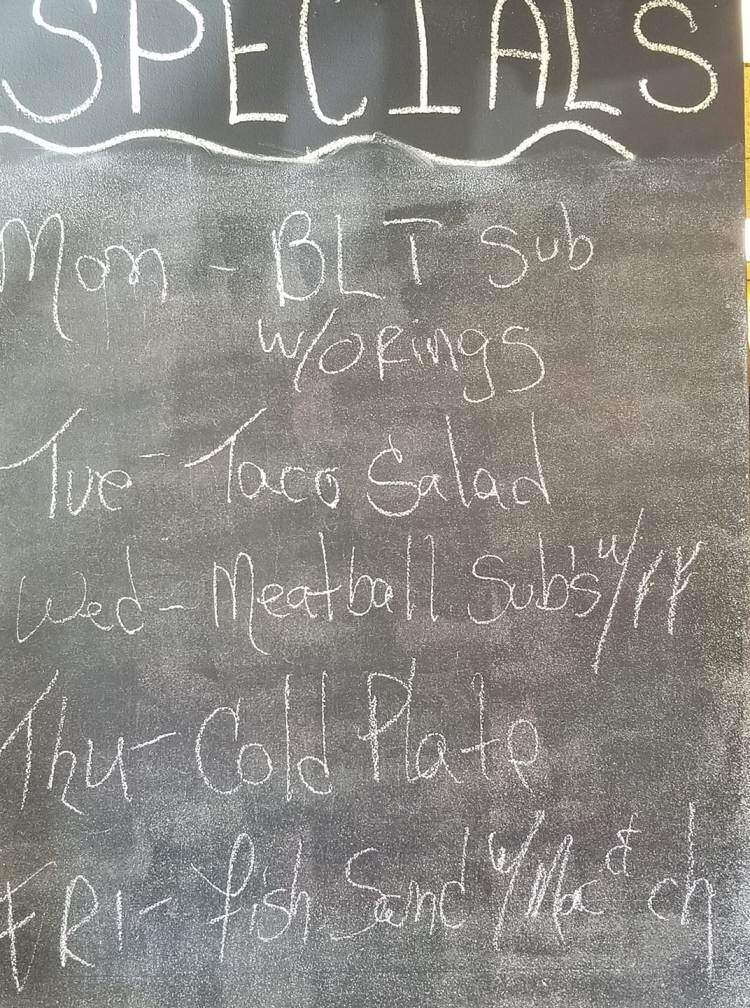 SPECIALS
Mon - BLT Sub
w/o Rings
Tue - Taco Salad
Wed - Meatball Sub's w/ FF
Thu - Cold Plate
FRI - Fish Sand w/ Mac & ch